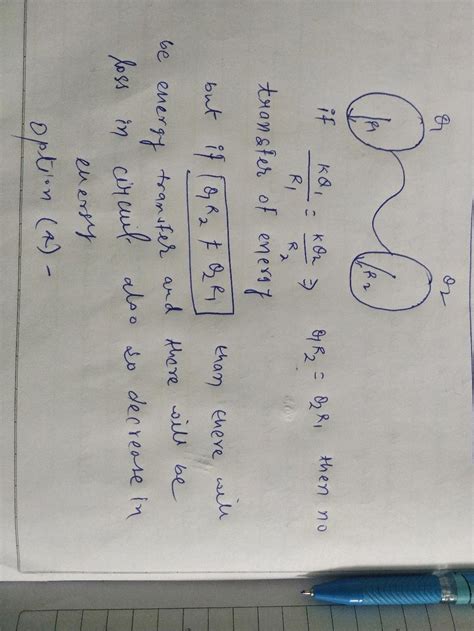 Q1 Q2
R1 R2
if KQ1/R1 = KQ2/R2 ⇒ Q1R2 = Q2R1 then no
transfer of energy
but if Q1R2 ≠ Q2R1 than there will
be energy transfer and there will be
loss in circuit also so decrease in
energy
option (a) -